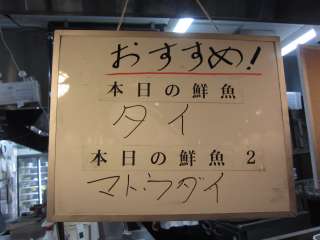 おすすめ!
本日の鮮魚
タイ
本日の鮮魚 2
マトウダイ